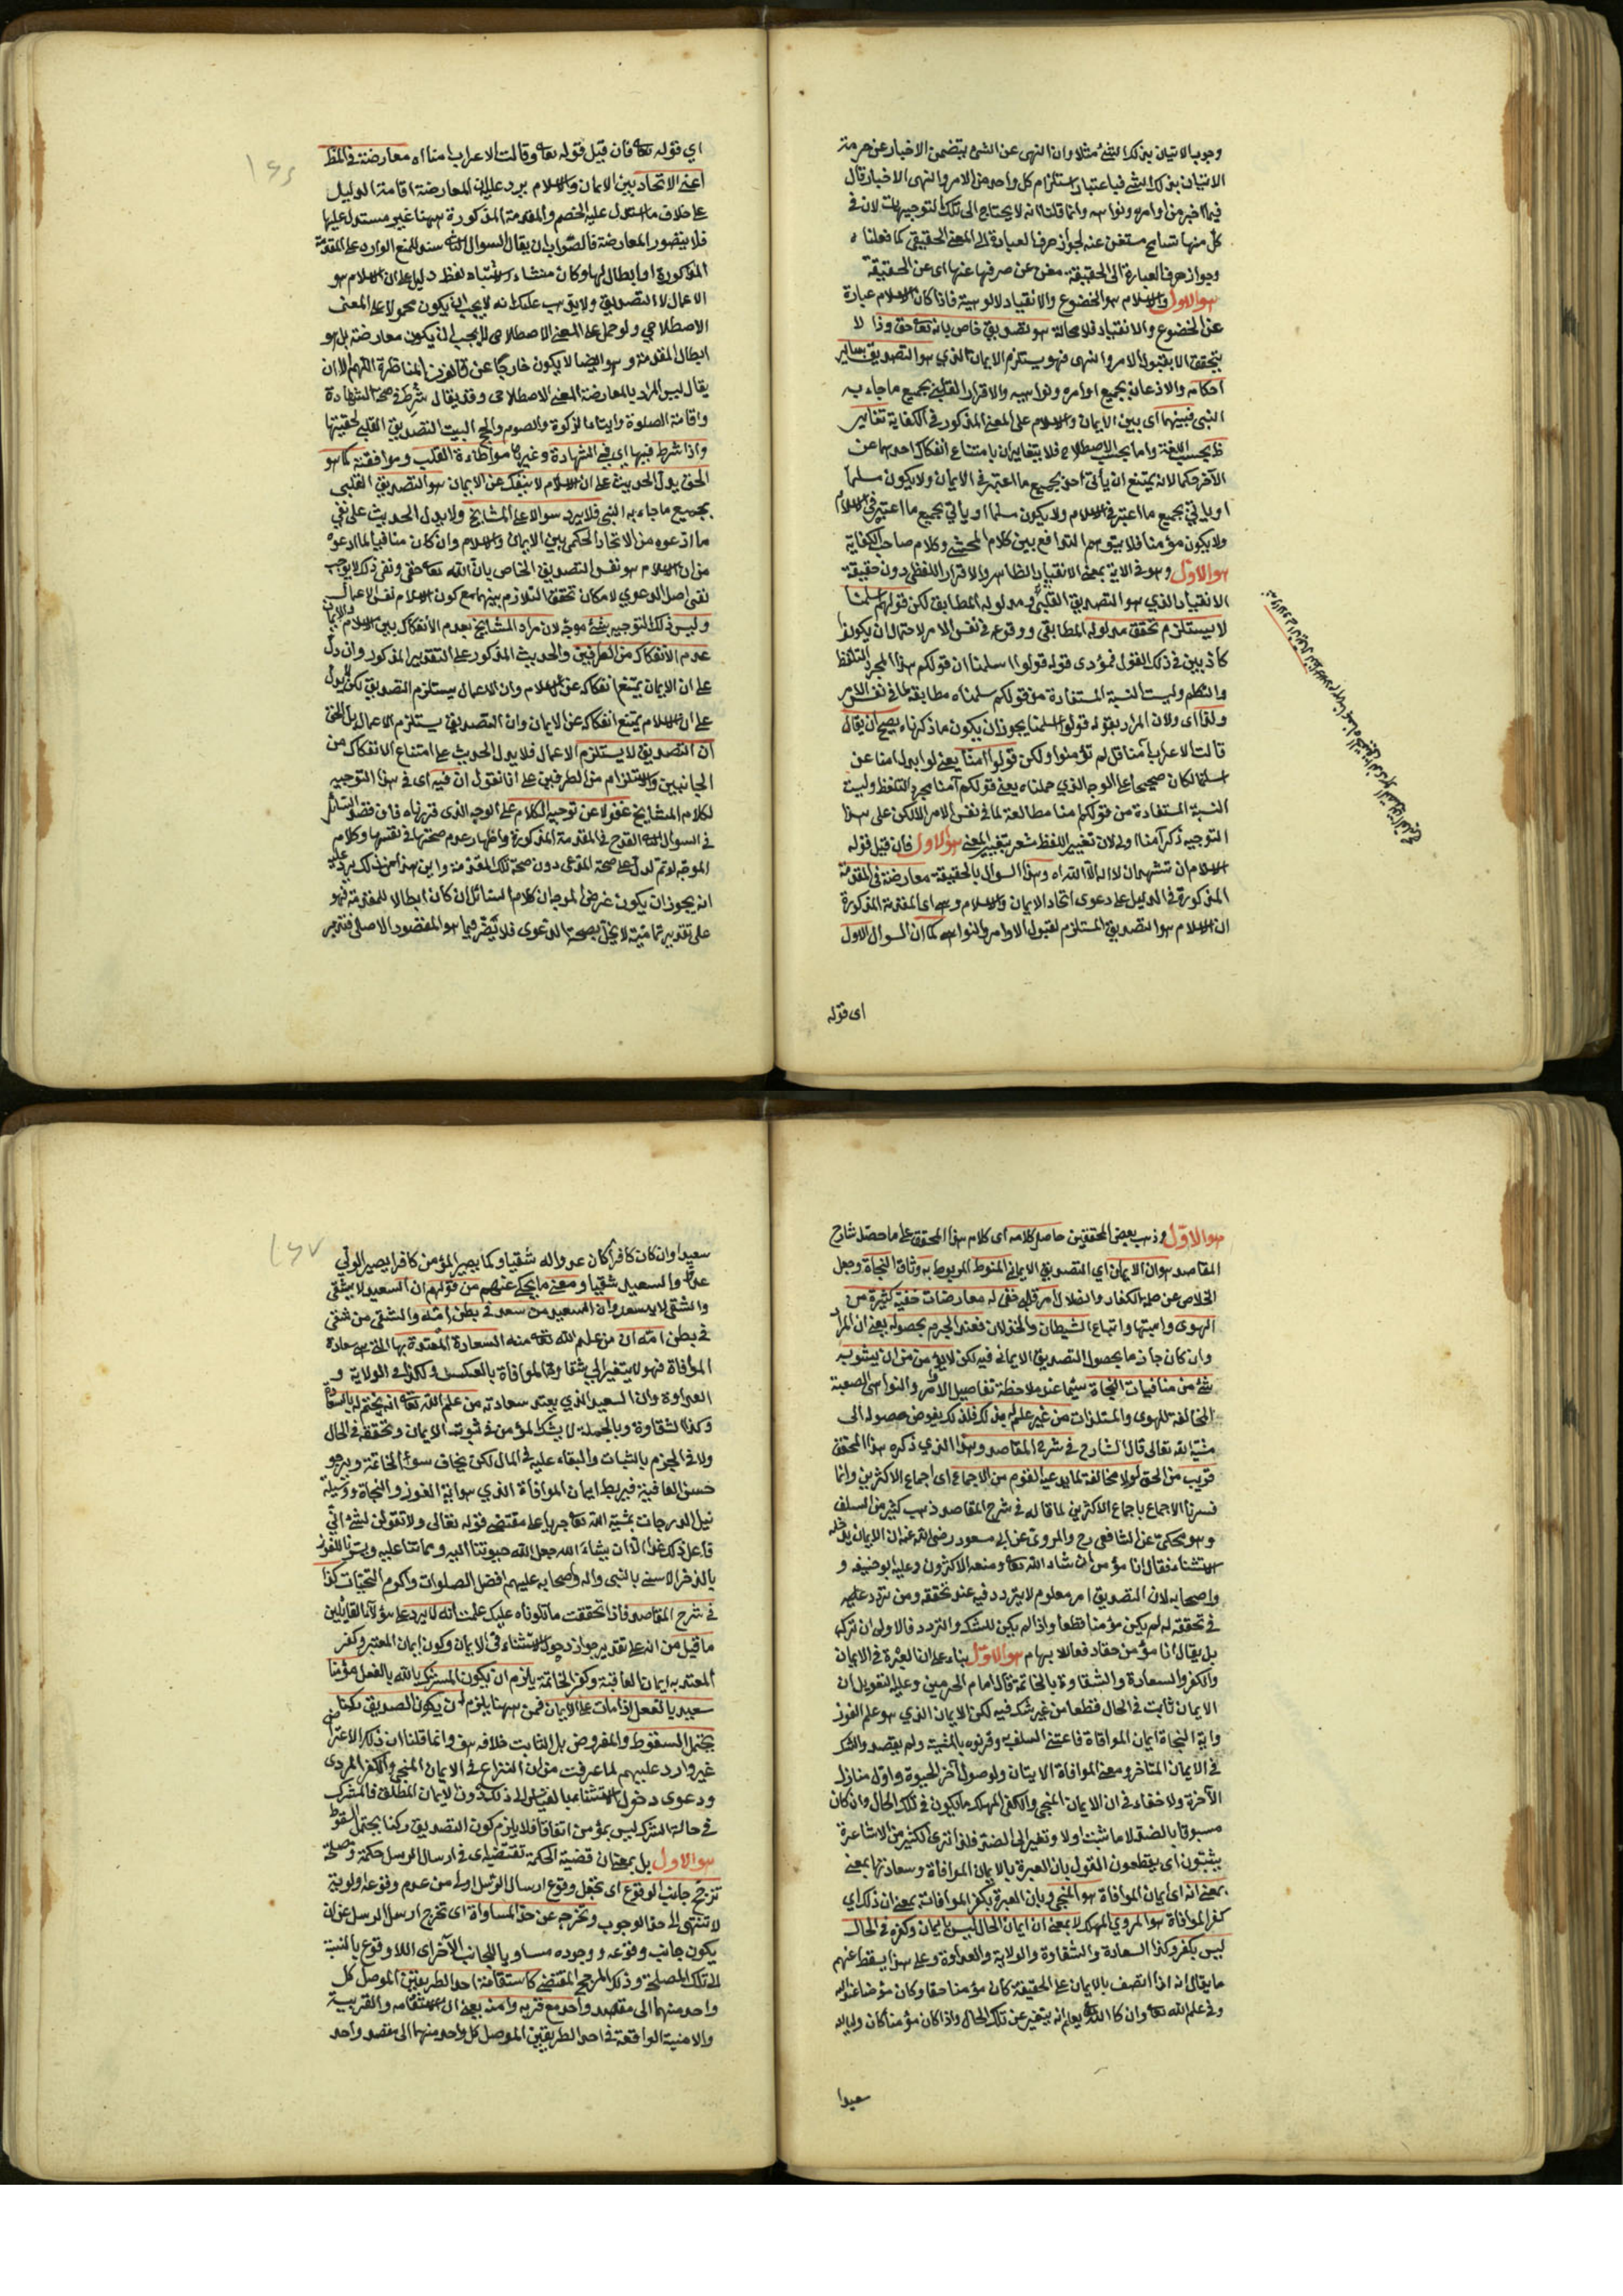 وجوب الاتيان بذلك الشئ مثلا وان النهى عن الشئ يتضمن الاخبار عن حرمة
الاتيان بذلك الشئ فباعتبار استلزام كل واحد من الامر والنهى الاخبار قال
فيما اخبر من اوامره ونواهيه وانما قلنا انه لا يحتاج الى تلك التوجيهات لان في
كل منها تسامح مستغن عنه لجواز صرف العبارة الى المعنى الحقيقي كما فعلناه
وجواز صرف العبارة الى الحقيقة مغن عن صرفها عنها اى عن الحقيقة
هو الاول والاسلام هو الخضوع والانقياد لالوهيته فاذا كان الاسلام عبارة
عن الخضوع والانقياد فلا محالة هو تصديق خاص بانه تعا حق وذا لا
يتحقق الا بقبول الامر والنهى فهو يستلزم الايمان الذي هو التصديق بساير
احكامه والاذعان بجميع اوامره ونواهيه والاقرار القلبي بجميع ما جاء به
النبى فبينهما اى بين الايمان والاسلام على المعنى المذكور في الكفاية تغاير
ظ بحسب اللغة واما بحسب الاصطلاح فلا يتغايران بامتناع انفكاك احدهما عن
الآخر فكما لانه يمتنع ان يأتى احد بجميع ما اعتبر في الايمان ولا يكون مسلما
او يأتي بجميع ما اعتبر في الاسلام ولا يكون مسلما او يأتي بجميع ما اعتبر في الاسلام
ولا يكون مؤمنا فلا يتوهم التدافع بين كلام المحشى وكلام صاحب الكفاية
هو الاول وهو في الآية بمعنى الانقياد الظاهر والاقرار اللفظى دون حقيقة
الانقياد الذي هو التصديق القلبى ومدلوله المطابق لكن قولهم اسلمنا
لا يستلزم تحقق مدلوله المطابقى ووقوعه في نفس الامر لاحتمال ان يكونوا
كاذبين في ذلك القول فمؤدى قوله قولوا اسلمنا ان قولكم هذا المجرد التلفظ
والتكلم وليست النسبة المستفادة من قولكم سلمناه مطابقة لما في نفس الامر
ولقا اى ولان المراد بقوله قولوا اسلمنا يجوز ان يكون ما ذكرناه يصح ان يقال
قالت الاعراب آمنا قل لم تؤمنوا ولكن قولوا آمنا يعنى لو ابدل امنا عن
اسلمنا لكان صحيحا على الوجه الذي حملناه يعنى قولكم آمنا مجرد التلفظ وليست
النسبة المستفادة من قولكم امنا مطابقة لما في نفس الامر الا لكن على هذا
التوجيه ذكر آمنا اولى لان تغيير اللفظ مشعر بتغيير المعنى هو الاول فان قيل قوله
الاسلام ان تشهد ان لا اله الا الله اه وهذا السوال بالحقيقة معارضة في المقدمة
المذكورة في الدليل على دعوى اتحاد الايمان والاسلام وهى اى المقدمة المذكورة
ان الاسلام هو التصديق المستلزم لقبول الاوامر والنواهى كما ان السوال الاول
اى قوله
اي قوله تعا فان قيل قوله تعا وقالت الاعراب امنا اه معارضة في المظ
اعنى الاتحاد بين الايمان والاسلام يرد عليه ان المعارضة اقامة الدليل
على خلاف ما استدل عليه الخصم والمقدمة المذكورة ههنا غير مستدل عليها
فلا يتصور المعارضة فالصواب ان يقال السوال الثانى سند للمنع الوارد على المقدمة
المذكورة او ابطال لها وكان منشاء الاشتباه لفظ دليل على ان الاسلام هو
الاعمال لا التصديق ولا يذهب عليك انه لا يجب ان يكون محمولا على المعنى
الاصطلاحي ولو حمل على المعنى الاصطلاحى لا يجب ان يكون معارضة بل هو
ابطال المقدمة وهو ايضا لا يكون خارجا عن قانون المناظرة اللهم الا ان
يقال ليس المراد بالمعارضة المعنى الاصطلاحى وقد يقال شرط في صحة الشهادة
واقامة الصلوة وايتاء الزكوة والصوم والحج البيت التصديق القلبى لحقيتها
واذا شرط فيها اى في الشهادة وغيرها مواطاءة القلب وموافقته كما هو
الحق يدل الحديث على ان الاسلام لا ينفك عن الايمان هو التصديق القلبى
بجميع ما جاء به النبى فلا يرد سوالا على المشايخ ولا يدل الحديث على نفي
ما ادعوه من الاتحاد الحكمى بين الايمان والاسلام وان كان منافيا لما ادعوه
من ان الاسلام هو نفس التصديق الخاص بان الله تعا حق ونفى ذلك لا يوجب
نفى اصل الدعوى لامكان تحقق التلازم بينهما مع كون الاسلام نفس الاعمال
وليس ذلك التوجيه بشئ موجه لان مراد المشايخ بعدم الانفكاك بين الاسلام والايمان
عدم الانفكاك من الطرفين والحديث المذكور على التقدير المذكور وان دل
على ان الايمان يمتنع انفكاكه عن الاسلام وان الاعمال يستلزم التصديق لكن لا يدل
على ان الاسلام يمتنع انفكاكه عن الايمان وان التصديق يستلزم الاعمال بل الحق
ان التصديق لا يستلزم الاعمال فلا يدل الحديث على امتناع الانفكاك من
الجانبين والاستلزام من الطرفين على انا نقول ان فيه اى في هذا التوجيه
لكلام المشايخ غفولا عن توجيه الكلام على الوجه الذى قررناه فان قصد السائل
في السوال الثانى القدح في المقدمة المذكورة واظهار عدم صحتها في نفسها وكلام
الموجه لا تم لدل على صحة المدعى دون صحة تلك المقدمة واين هذا من ذلك يرد عليه
انه يجوز ان يكون غرض الموجه ان كلام السائل ان كان ابطالا للمقدمة فهو
على تقدير تماميته لا يخل بصحة الدعوى فلا يضر فيما هو المقصود الاصلى فتدبر
هو الاول وذهب بعض المحققين حاصل كلامه اى كلام هذا المحقق على ما حصله شارح
المقاصد هو ان الايمان اي التصديق الايمانى المنوط المربوط به وثاق النجاة وجعل
الخلاص عن صلة الكفار والضلال امر قلبى خفى له معارضات خفية كثيرة من
الهوى وامنيتها واتباع الشيطان والخذلان فعند الجزم بحصوله يعنى ان المرأ
وان كان جازما بحصول التصديق الايمانى فيه لكن لا يؤمن من ان يشوبه
شئ من منافيات النجاة سيما عند ملاحظة تفاصيل الاوامر والنواهى الصعبة
المخالفة للهوى والمستلذات من غير علم له بذلك فلذلك يفوض حصوله الى
مشية الله تعالى قال الشارح في شرح المقاصد وهذا الذي ذكره هذا المحقق
قريب من الحق لولا مخالفة لما يدعيه القوم من الاجماع اى اجماع الاكثرين وانما
فسرنا الاجماع باجماع الاكثرين لما قاله في شرح المقاصد ذهب كثير من السلف
وهو محكى عن الشافعى رح والمروى عن ابى مسعود رضى الله عنه ان الايمان يدخله
الاستثناء فقال انا مؤمن ان شاء الله تعا ومنعه الاكثرون وعليه ابو حنيفه و
واصحابه لان التصديق امر معلوم لا يتردد فيه عند تحققه ومن تردد عليه
في تحققه له لم يكن مؤمنا قطعا واذا لم يكن للشك والتردد فالاولى ان تركه
بل يقال انا مؤمن حقا دفعا للابهام هو الاول بناء على ان العبرة في الايمان
والكفر والسعادة والشقاوة بالخاتمة قال امام الحرمين وعليه التعويل ان
الايمان ثابت في الحال قطعا من غير شك فيه لكن الايمان الذي هو علم الفوز
واية النجاة ايمان الموافاة فاعتنى السلف به وقرنوه بالمشية ولم يقصد والشك
في الايمان المتاخر ومعنى الموافاة الاتيان والوصول آخر الحيوة واول منازل
الآخرة ولا خفاء في ان الايمان المنجى والكفر المهلك ما يكون في تلك الحال وان كان
مسبوقا بالضد لا ما ثبت اولا وتغير الى الضد فلذا ترى الكثير من الاشاعرة
يثبتون اى يقطعون القول بان العبرة بالايمان الموافاة وسعادتها بمعنى
بمعنى انه اى ايمان الموافاة هو المنجى وبان العبرة بكفر الموافاته بمعنى ان ذلك اي
كفر الموافاة هو المردي المهلك لا بمعنى ان ايمان الحال ليس بايمان وكفره في الحال
ليس بكفر وكذا السعادة والشقاوة والولاية والعداوة وعلى هذا يسقط عنهم
ما يقال انه اذا اتصف بالايمان على الحقيقة كان مؤمنا حقا وكان مؤمنا عند الله
وفي علم الله تعا وان كان الله تعا يعلم انه يتغير عن تلك الحال واذا كان مؤمنا كان وليا لله
سعيدا
سعيدا وان كان كافرا كان عدوا له شقيا وكما يصير المؤمن كافرا يصير الولي
عدوا والسعيد شقيا ومعنى ما يحكى عنهم من قولهم ان السعيد لا يشقى
والشقى لا يسعد وان السعيد من سعد في بطن امه والشقى من شقى
في بطن امه ان من علم الله تعا منه السعادة المعتدة بها التى هى سعادة
الموافاة فهو لا يتغير الى شقاوة الموافاة بالعكس وكذا في الولاية و
العداوة وان السعيد الذي يعتد سعادته من علم الله تعا انه يختم له بالسعادة
وكذا الشقاوة وبالجملة لا يشك المؤمن في ثبوت الايمان وتحققه في الحال
ولا في الجزم بالثبات والبقاء عليه في المال لكن يخاف سوء الخاتمة ويرجو
حسن العاقبة فيربط ايمان الموافاة الذي هو اية الفوز والنجاة ووسيلة
نيل الدرجات بمشية الله تعا جريا على مقتضى قوله تعالى ولا تقولن لشئ انى
فاعل ذلك غدا الا ان يشاء الله جعل الله حيوتنا اليه ومماتنا عليه ويسرنا للفوز
بالذخر الاسنى بالنبى واله واصحابه عليهم افضل الصلوات واكرم التحيات كذا
في شرح المقاصد فاذا تحققت ما تلوناه عليك علمت انه لا يرد على هؤلاء القايلين
ما قيل من انه على تقدير جواز دخول الاستثناء في الايمان وكون ايمان المعتبر وكفر
المعتد به ايمان العاقبة وكفر الخاتمة يلزم ان يكون المشرك بالله بالفعل مؤمنا
سعيد بالفعل اذا مات على الايمان فمن ههنا يلزم ان يكون الصديق ركنا
يحتمل السقوط والمفروض بل الثابت خلافه هف وانما قلنا ان ذلك الاعتراض
غير وارد عليهم لما عرفت من ان النزاع في الايمان المنجى والكفر المردى
ودعوى دخول الاستثناء بالقياس الى ذلك دون الايمان المطلق فالمشرك
في حالة الشرك ليس بمؤمن اتفاقا فلا يلزم كون التصديق ركنا يحتمل السقوط
هو الاول بل بمعنى ان قضية الحكمة تقتضيه اى في ارسال الرسل حكمة ومصلحة
ترجح جانب الوقوع اى تجعل وقوع ارسال الرسل اولى من عدم وقوعه اولوية
لا تنتهى الى حد الوجوب وتخرجه عن حد المساواة اى تخرج ارسل الرسل عن ان
يكون جانب وقوعه ووجوده مساويا للجانب الآخر اى اللاوقوع بالنسبة
الى تلك المصلحة وذلك المرجح المقتضى كاستقامة احد الطريقين الموصل كل
واحد منهما الى مقصد واحد مع قربه وامنه يعنى ان الاستقامة والقريبية
والامنية الواقعة في احد الطريقين الموصل كل واحد منهما الى مقصد واحد